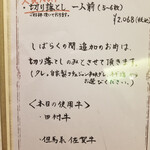 ・切り落とし 一人前(5〜6枚)
¥2,068(税込)
しばらくの間 追加のお肉は、
切り落としのみとさせて頂きます。
(タレ、自家製
お選びください。)
<本日の使用牛>
・田村牛
・但馬系 佐賀牛